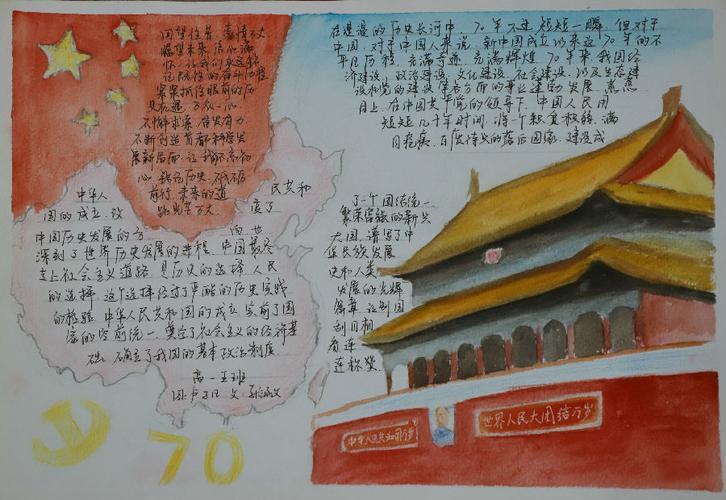 回望往昔，豪情不大
瞻望未来，信心满
怀，让我们永远铭
记
紧紧抓住眼前的历
史机遇，万众一心
不懈求索，奋发有力
不断创造首都科学发
展新局面，让我们高励
心，铭记历史，砥砺
前行，未来的道
路光芒万丈
在漫漫的历史长河中，70年不过短短一瞬，但对于
中国，对于中国人来说，新中国成立以来这70年的不
平凡历程，充满奇迹，充满辉煌，70年来，我国经
济建设，政治建设，文化建设，社会建设，以及生态建
设和党的建设等各方面的事业蓬勃发展，蒸蒸
日上，在中国共产党的领导下，中国人民用
短短几十年时间，将一个积贫积弱，满
目疮痍，百废待兴的落后国家，建设成
了一个团结统一
繁荣富强的新兴
大国，谱写了中
华民族发展
史和人类
发展的光辉
篇章，让别国
刮目相
看，连
连称赞
中华人民共和
国的成立，改变了
中国历史发展的方向，也
深刻了世界历史发展的进程，中国最终
走上社会主义道路，是历史的选择，人民
的选择，这个选择经过了严酷的历史实践
的检验，中华人民共和国的成立，实现了国
家的空前统一，奠定了社会主义的经济基
础，确立了我国的基本政治制度
高一五班
70
中华人民共和国万岁
世界人民大团结万岁